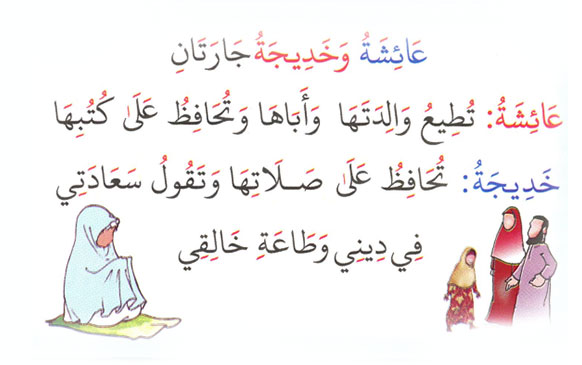 عَائِشَةُ وَخَدِيجَةُ جَارَتَانِ
عَائِشَةُ: تُطِيعُ وَالِدَتَهَا وَأَبَاهَا وَتُحَافِظُ عَلَى كُتُبِهَا
خَدِيجَةُ: تُحَافِظُ عَلَى صَـلَاتِهَا وَتَقُولُ سَعَادَتِي
فِي دِينِي وَطَاعَةِ خَالِقِي